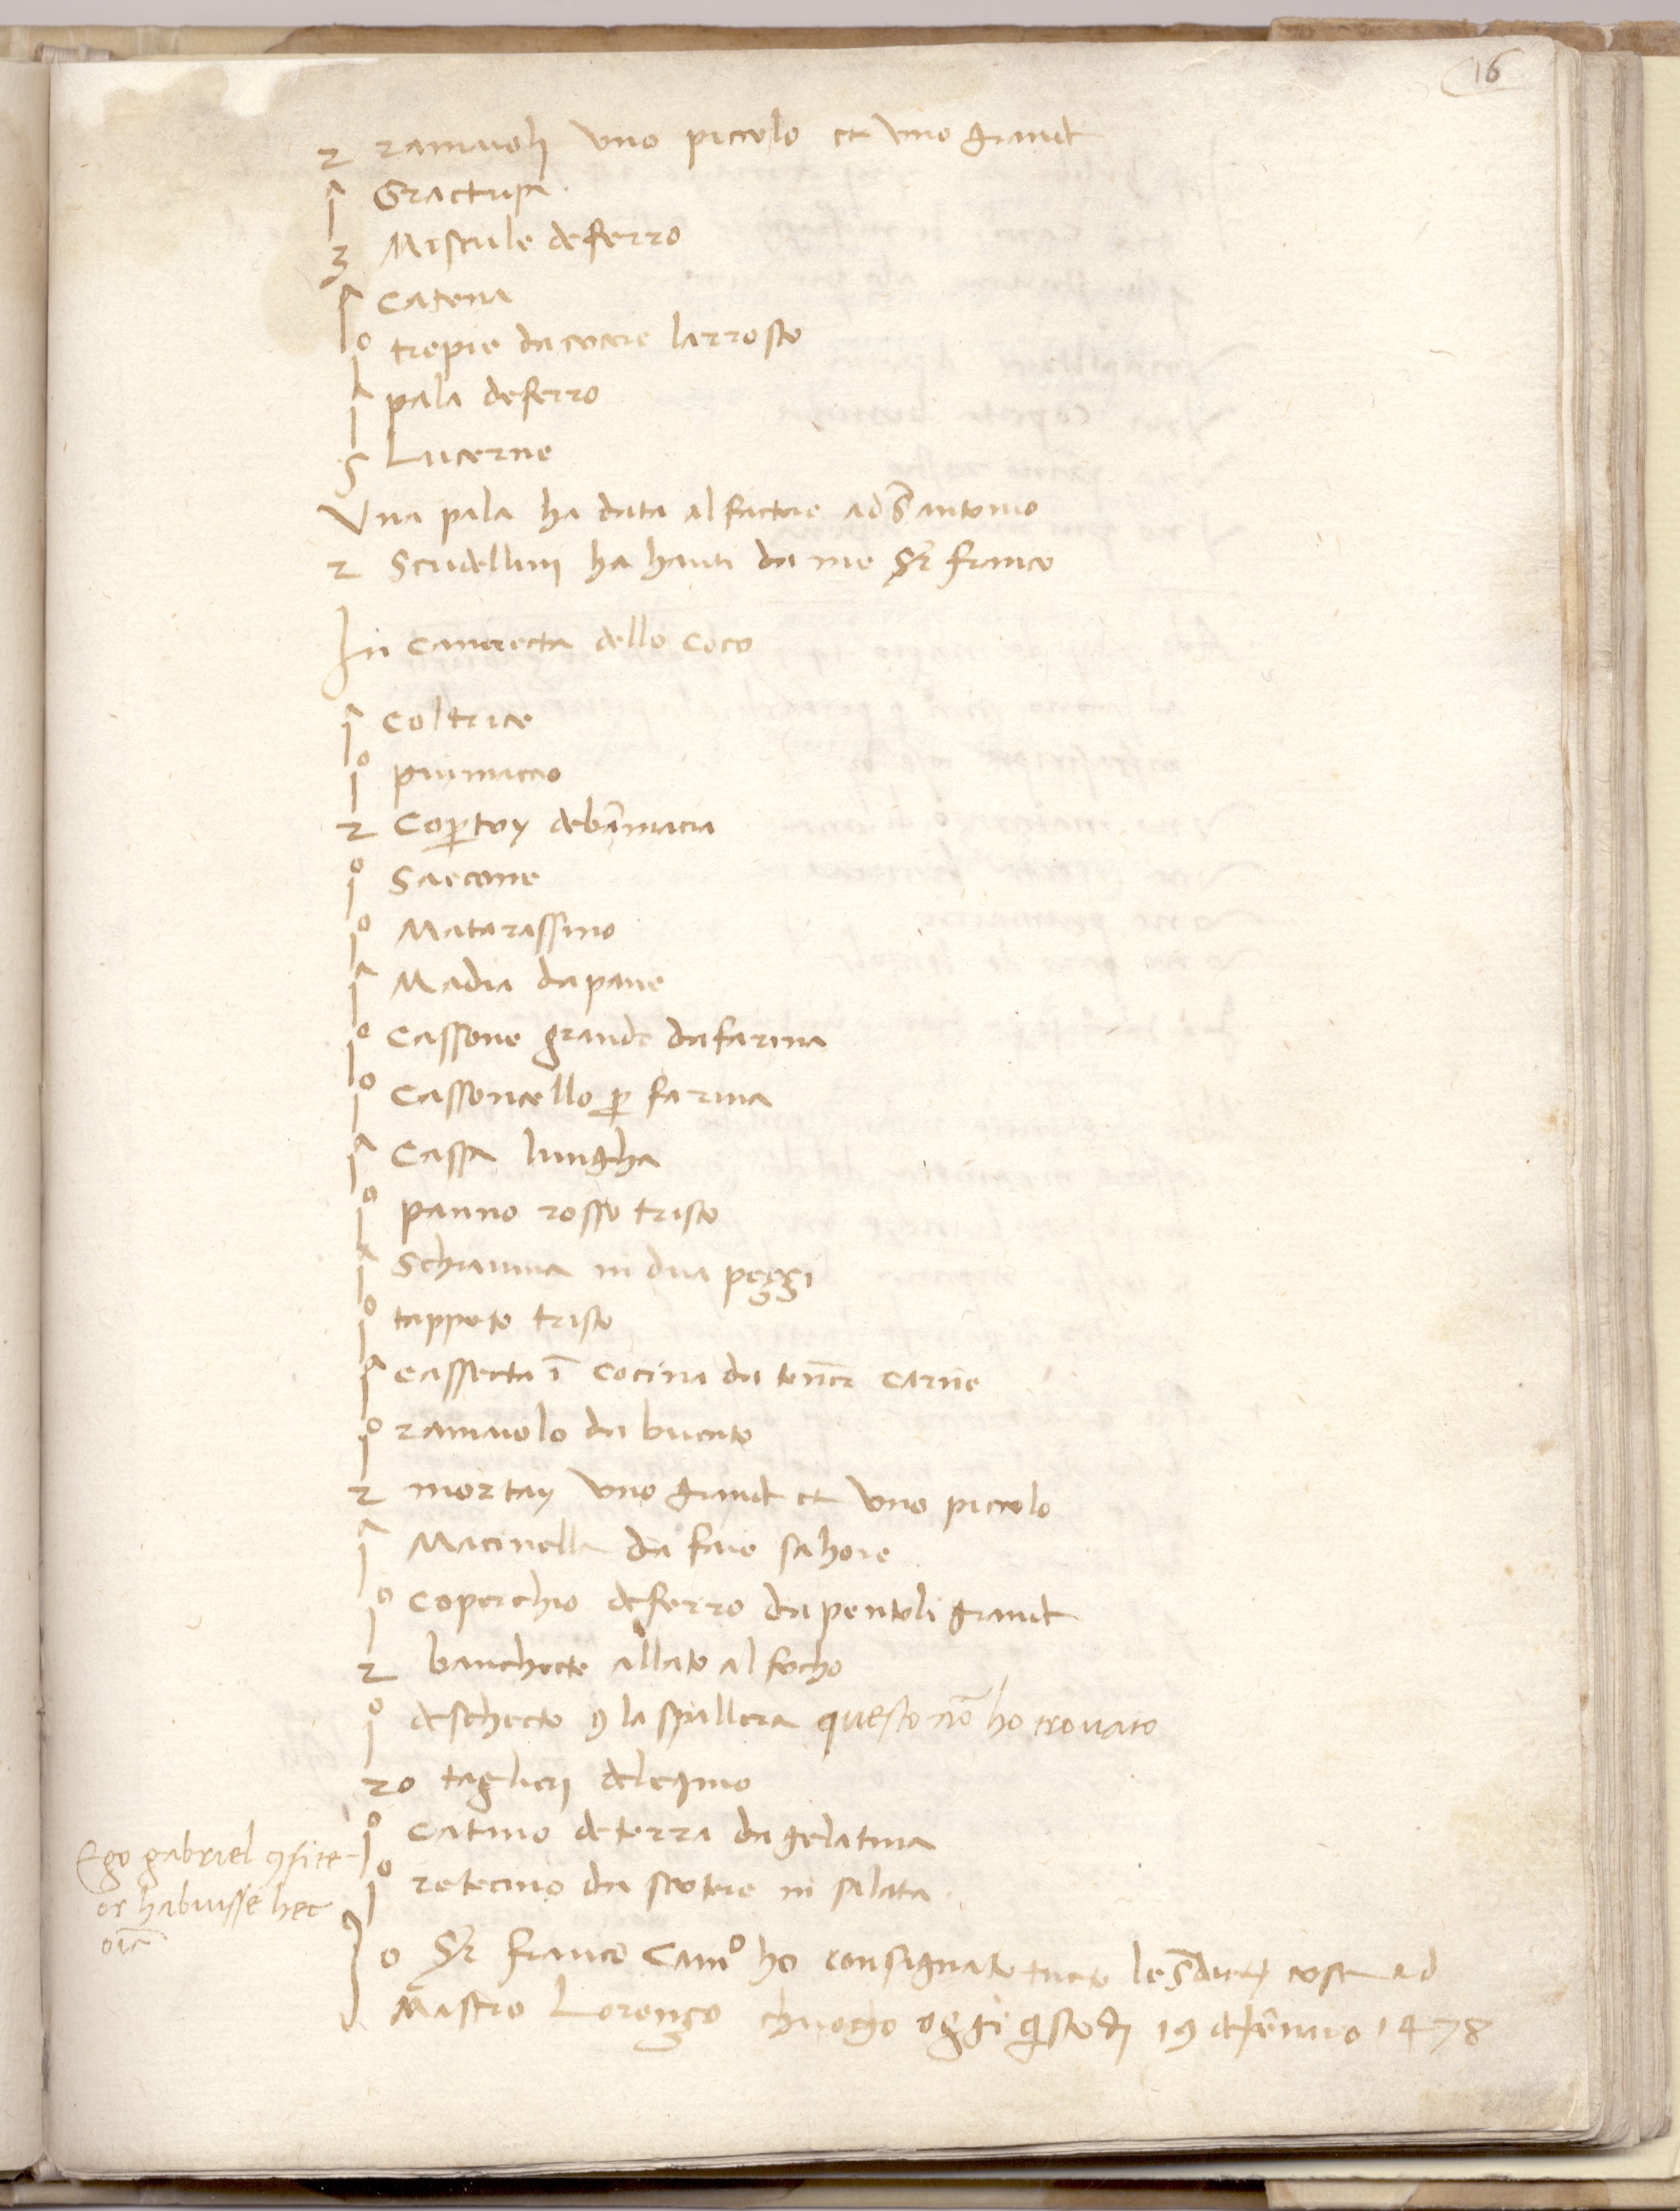 16
2 ramaioli uno piccolo et uno grande
1ª Gractusa
3 Mescule de ferro
1ª Catena
1º trepie da cocere larrosto
1ª pala de ferro
5 Lucerne
Una pala ha data al factore ad s̄ antonio
2 Scudellini ha hauti da me Sr̄ franco
In camerecta dello Coco
1ª Coltrice
1º piumaccio
2 Cop̄toy de bā̄macia
1º Saccone
1º Matarassino
1ª Madia da pane
1º Cassone grande da farina
1º Cassoncello p̱ farina
1ª Cassa lungha
1º panno rosso tristo
1ª Schiavina in dua peççi
1º tappeto tristo
1ª cassecta ī cocina da teñer carne
1º ramaiolo da bucato
2 mortay uno grande et uno piccolo
1ª Macinella da fare sapore
1º Coperchio de ferro da pentoli grande
2 banchecte allato al focho
1º deschecto ꝯ la spallera questo nō ho trovato
20 taglieri de legno
1º Catino de terra da gelatina
1º retecino da scotere insalata
Ego gabriel ꝯfite-
or habuisse hec
oīa
Io Sr̄ franc̄ Camº ho consignato tucte le s̄dicte cose ad
Mastro Lorenço chuocho oggi q̄sto dj 19 de Jēnaio 1478